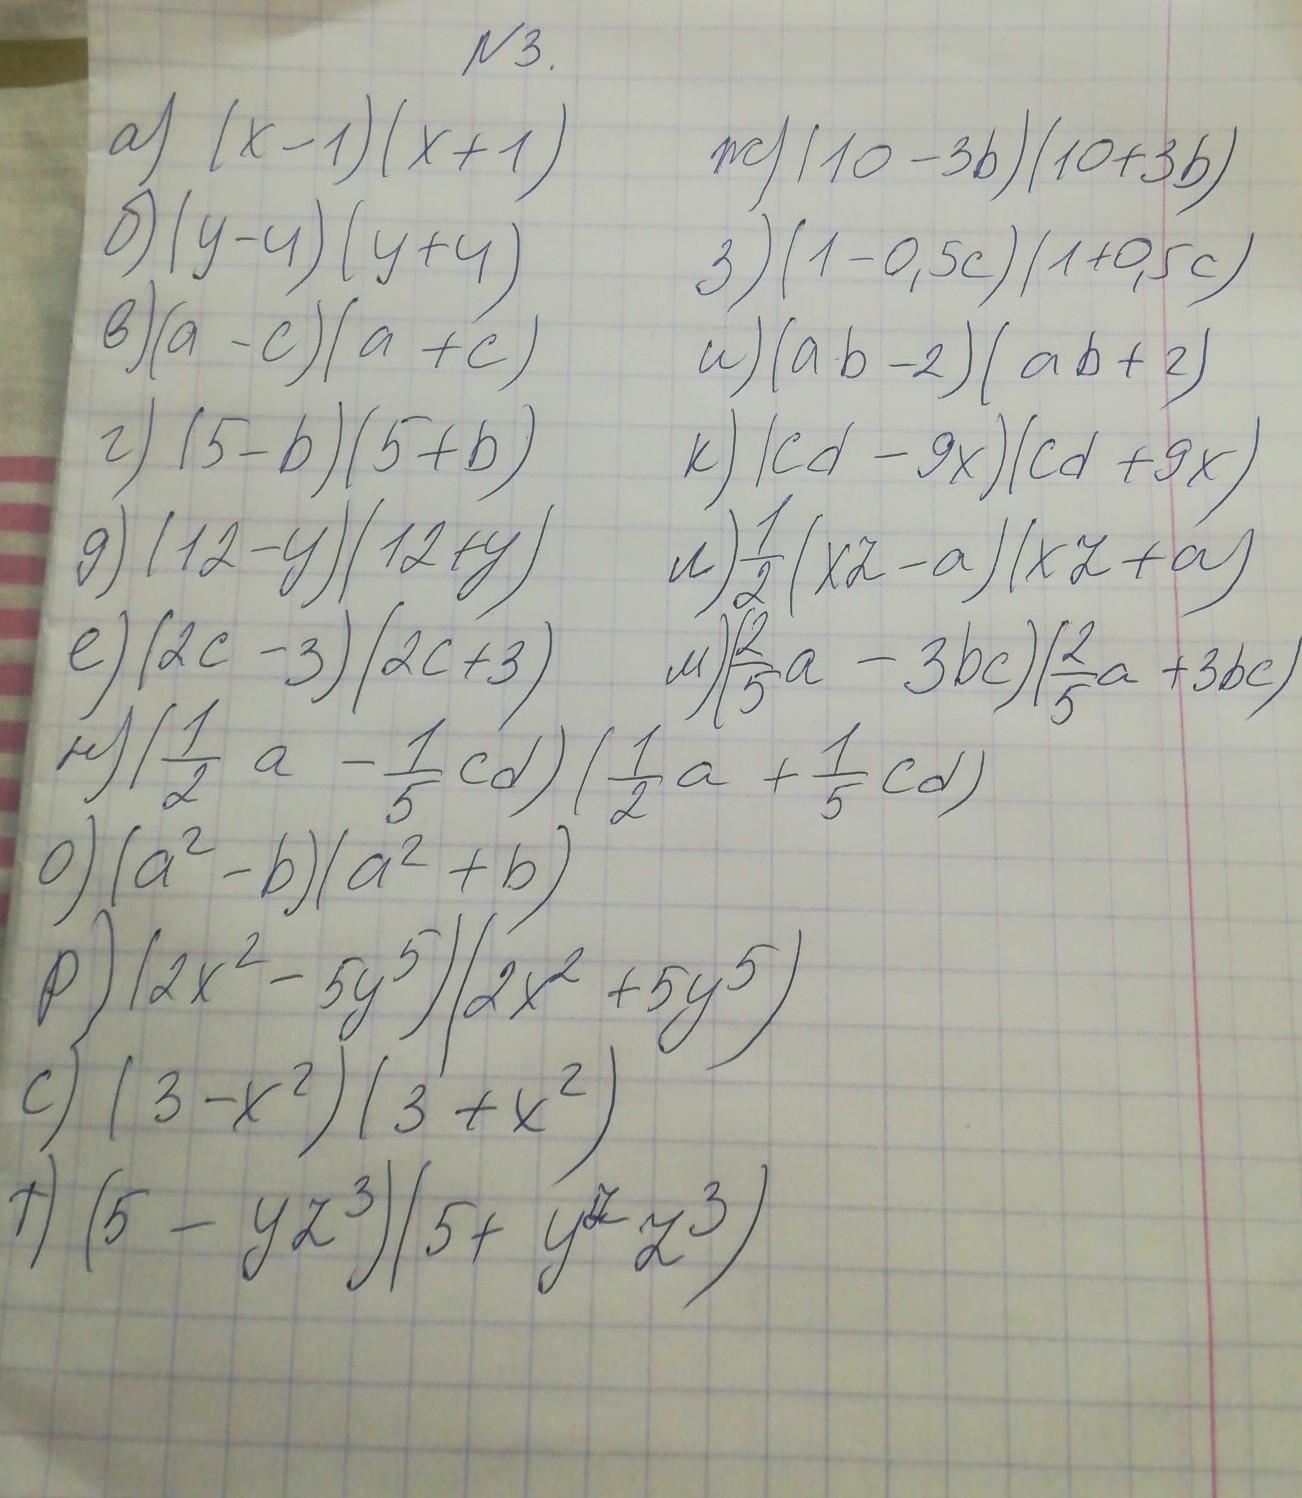 N3.
а) (x-1)(x+1)
б) (y-4)(y+4)
в) (a-c)(a+c)
г) (5-b)(5+b)
д) (12-y)(12+y)
е) (2c-3)(2c+3)
ж) (10-3b)(10+3b)
з) (1-0,5c)(1+0,5c)
и) (ab-2)(ab+2)
к) (cd-9x)(cd+9x)
л) 1/2(xz-a)(xz+a)
м) (2/5a-3bc)(2/5a+3bc)
н) (1/2a-1/5cd)(1/2a+1/5cd)
о) (a²-b)(a²+b)
р) (2x²-5y⁵)(2x²+5y⁵)
с) (3-x²)(3+x²)
т) (5-yz³)(5+y z³)